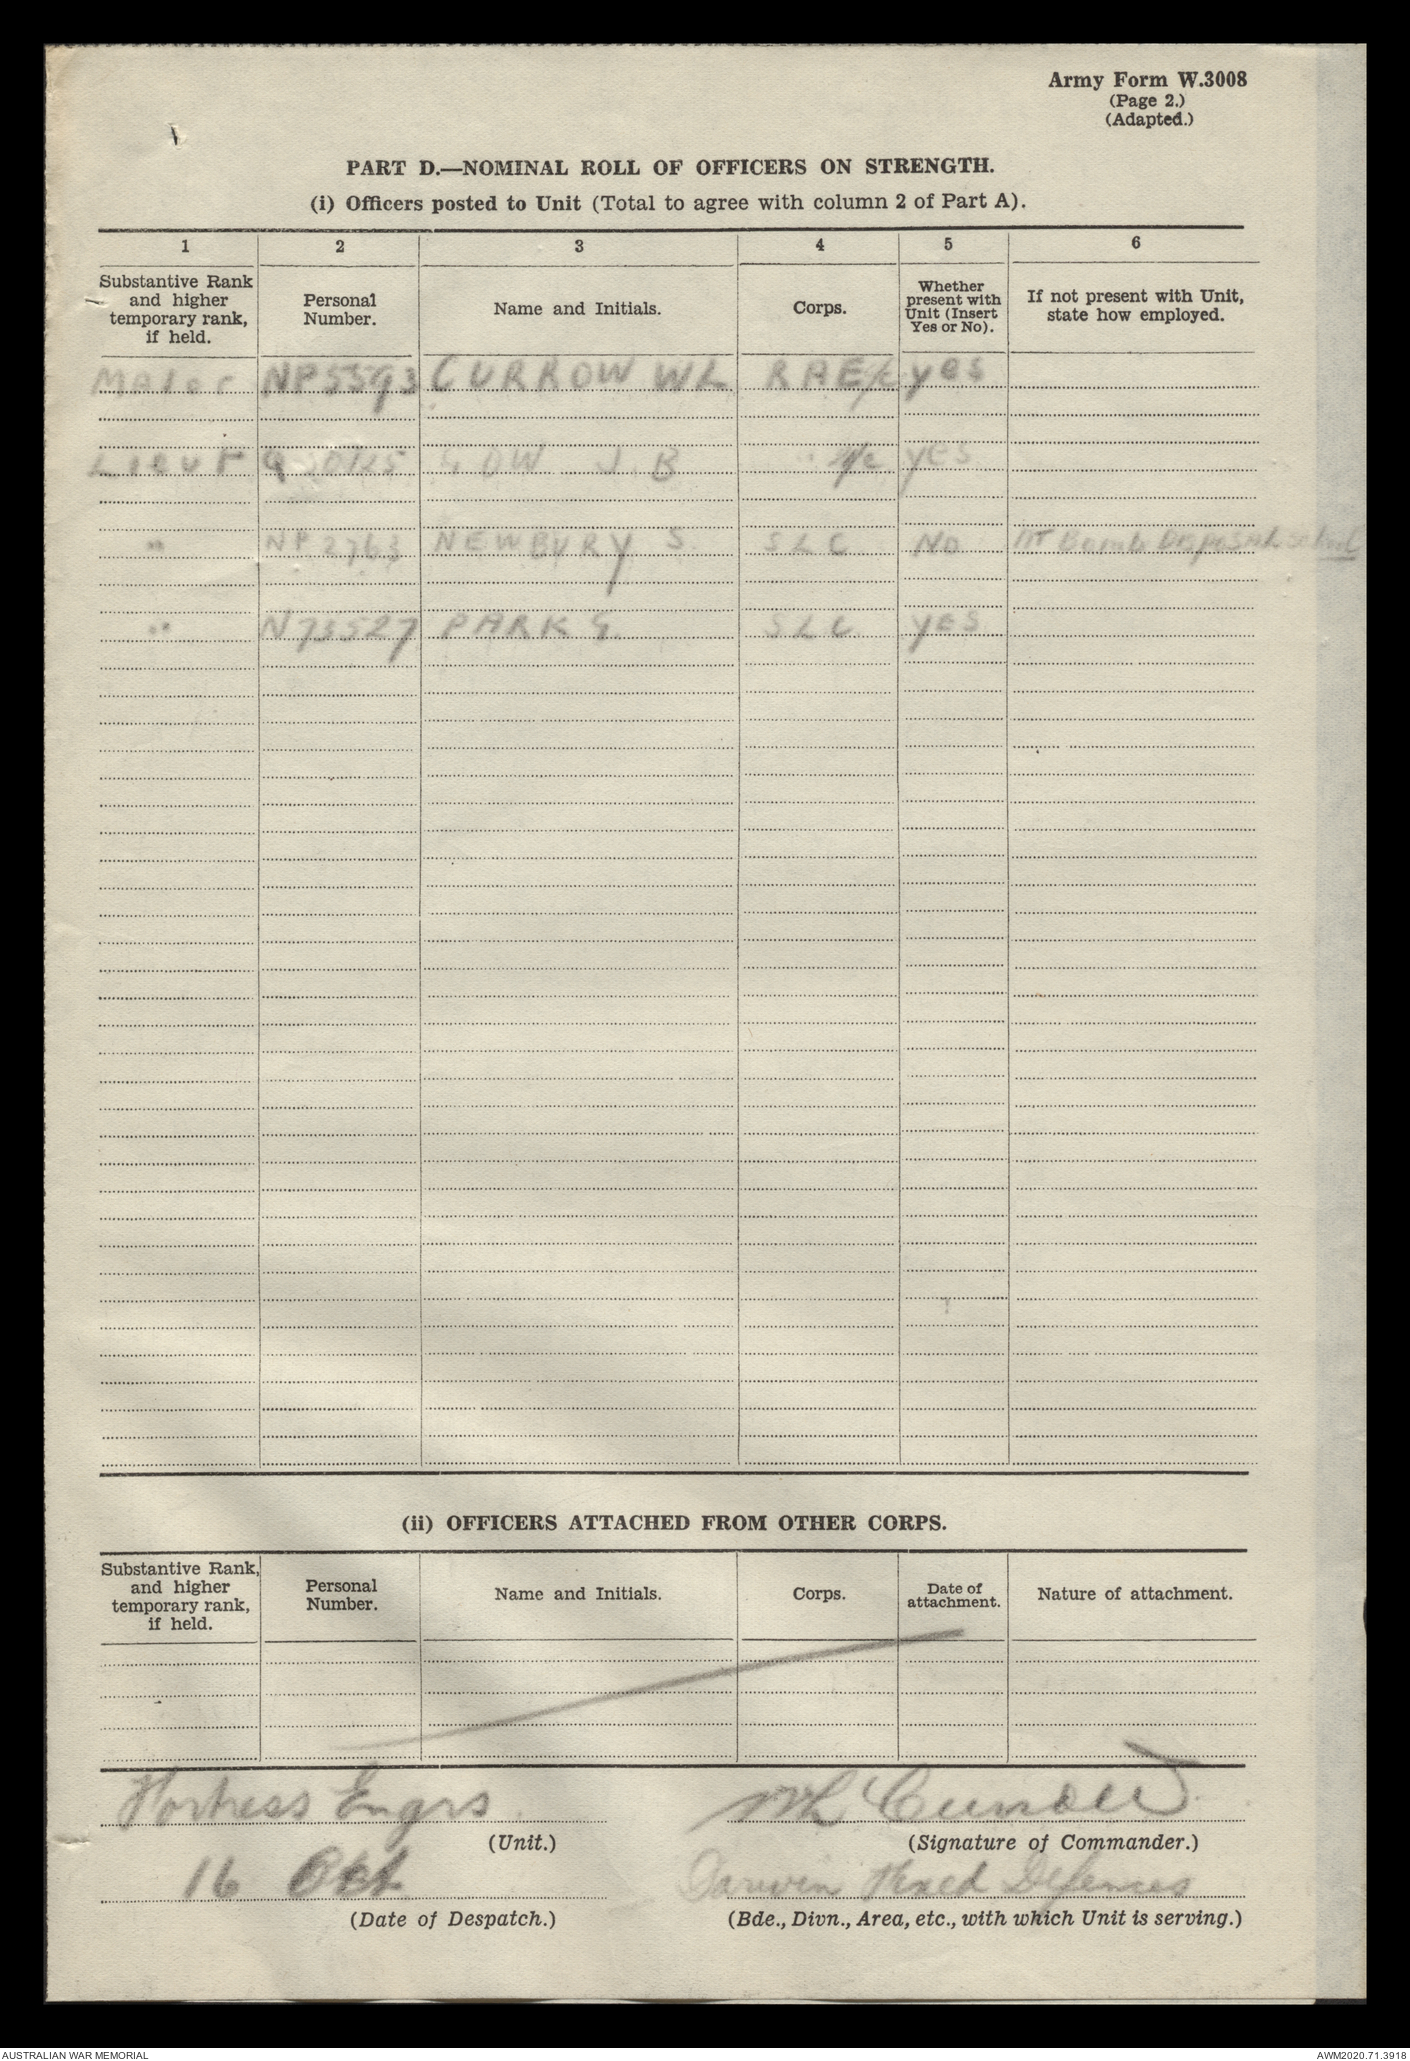 Army Form W.3008
(Page 2.)
(Adapted.)
PART D.—NOMINAL ROLL OF OFFICERS ON STRENGTH.
(i) Officers posted to Unit (Total to agree with column 2 of Part A).
1 2 3 4 5 6
Substantive Rank and higher temporary rank, if held. Personal Number. Name and Initials. Corps. Whether present with Unit (Insert Yes or No). If not present with Unit, state how employed.
Major NP5593 CURROW WL RAE yes
Lieut GOW J.B " yes
" NP2763 NEWBURY S. SLC NO AT Bomb Disposal school
" N73527 PARK G. SLC yes
(ii) OFFICERS ATTACHED FROM OTHER CORPS.
Substantive Rank, and higher temporary rank, if held. Personal Number. Name and Initials. Corps. Date of attachment. Nature of attachment.
Fortress Engrs WL Currow
(Unit.) (Signature of Commander.)
16 Oct Darwin Fixed Defences
(Date of Despatch.) (Bde., Divn., Area, etc., with which Unit is serving.)
AUSTRALIAN WAR MEMORIAL AWM2020.71.3918